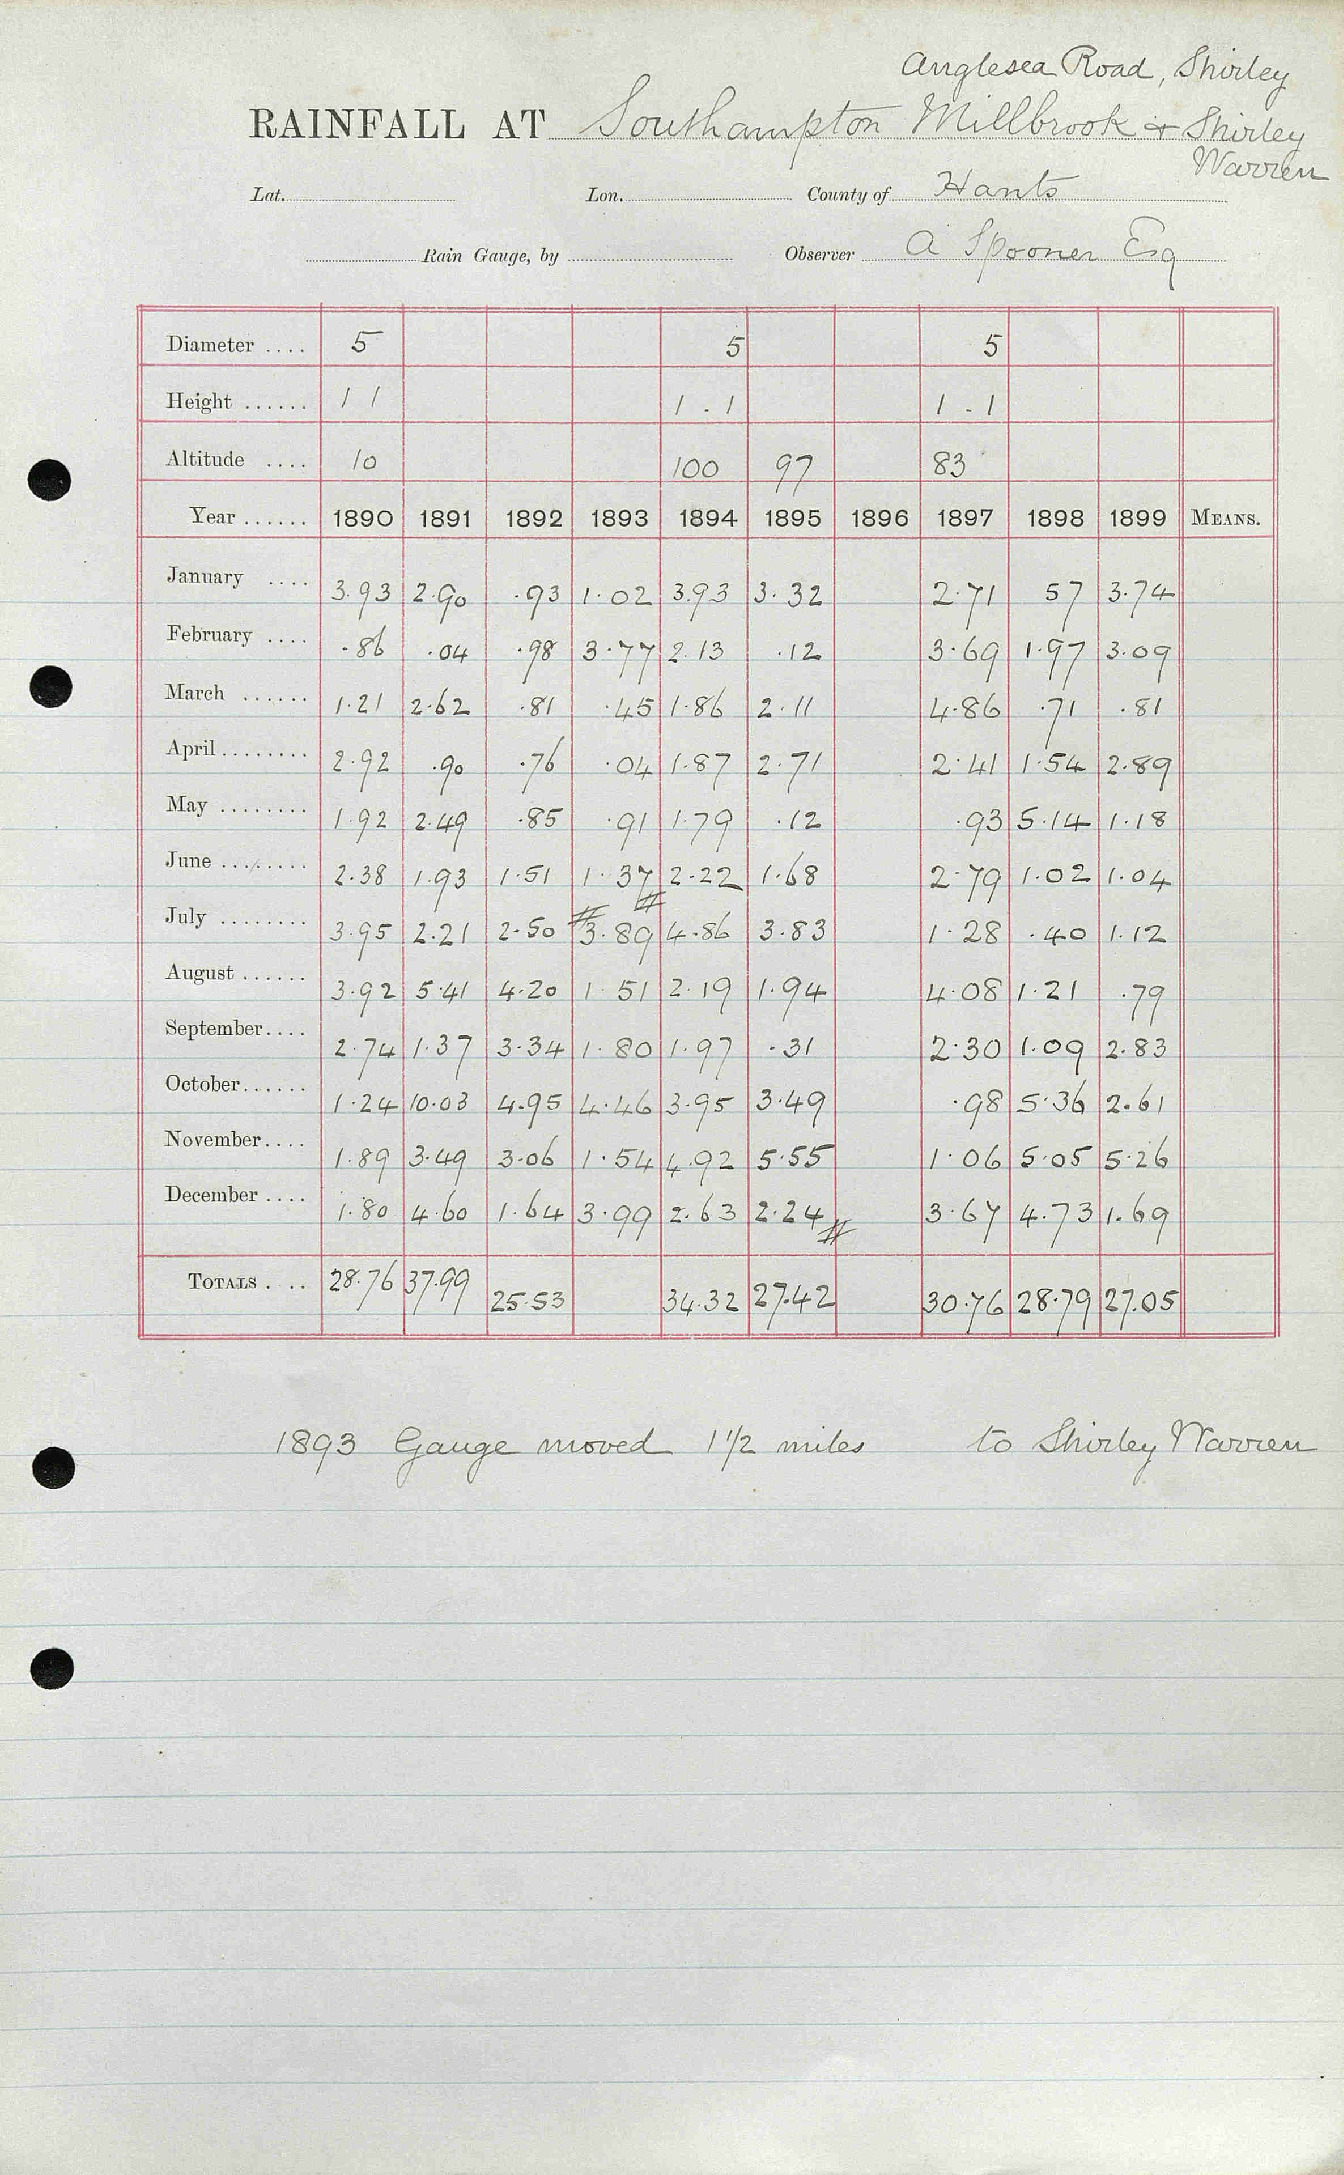 Anglesea Road, Shirley
RAINFALL AT Southampton Millbrook & Shirley
Warren
Lat. Lon. County of Hants
Rain Gauge, by Observer A Spooner Esq
Diameter .... 5 5 5
Height ...... 1 1 1 . 1 1 . 1
Altitude .... 10 100 97 83
Year ...... 1890 1891 1892 1893 1894 1895 1896 1897 1898 1899 MEANS.
January .... 3.93 2.90 .93 1.02 3.93 3.32 2.71 57 3.74
February .... .86 .04 .98 3.77 2.13 .12 3.69 1.97 3.09
March ...... 1.21 2.62 .81 .45 1.86 2.11 4.86 .71 .81
April ........ 2.92 .90 .76 .04 1.87 2.71 2.41 1.54 2.89
May ........ 1.92 2.49 .85 .91 1.79 .12 .93 5.14 1.18
June ........ 2.38 1.93 1.51 1.37 2.22 1.68 2.79 1.02 1.04
July ........ 3.95 2.21 2.50 3.89 4.86 3.83 1.28 .40 1.12
August ...... 3.92 5.41 4.20 1.51 2.19 1.94 4.08 1.21 .79
September.... 2.74 1.37 3.34 1.80 1.97 .31 2.30 1.09 2.83
October...... 1.24 10.03 4.95 4.46 3.95 3.49 .98 5.36 2.61
November.... 1.89 3.49 3.06 1.54 4.92 5.55 1.06 5.05 5.26
December .... 1.80 4.60 1.64 3.99 2.63 2.24 3.67 4.73 1.69
TOTALS .... 28.76 37.99 25.53 34.32 27.42 30.76 28.79 27.05
1893 Gauge moved 1 1/2 miles to Shirley Warren